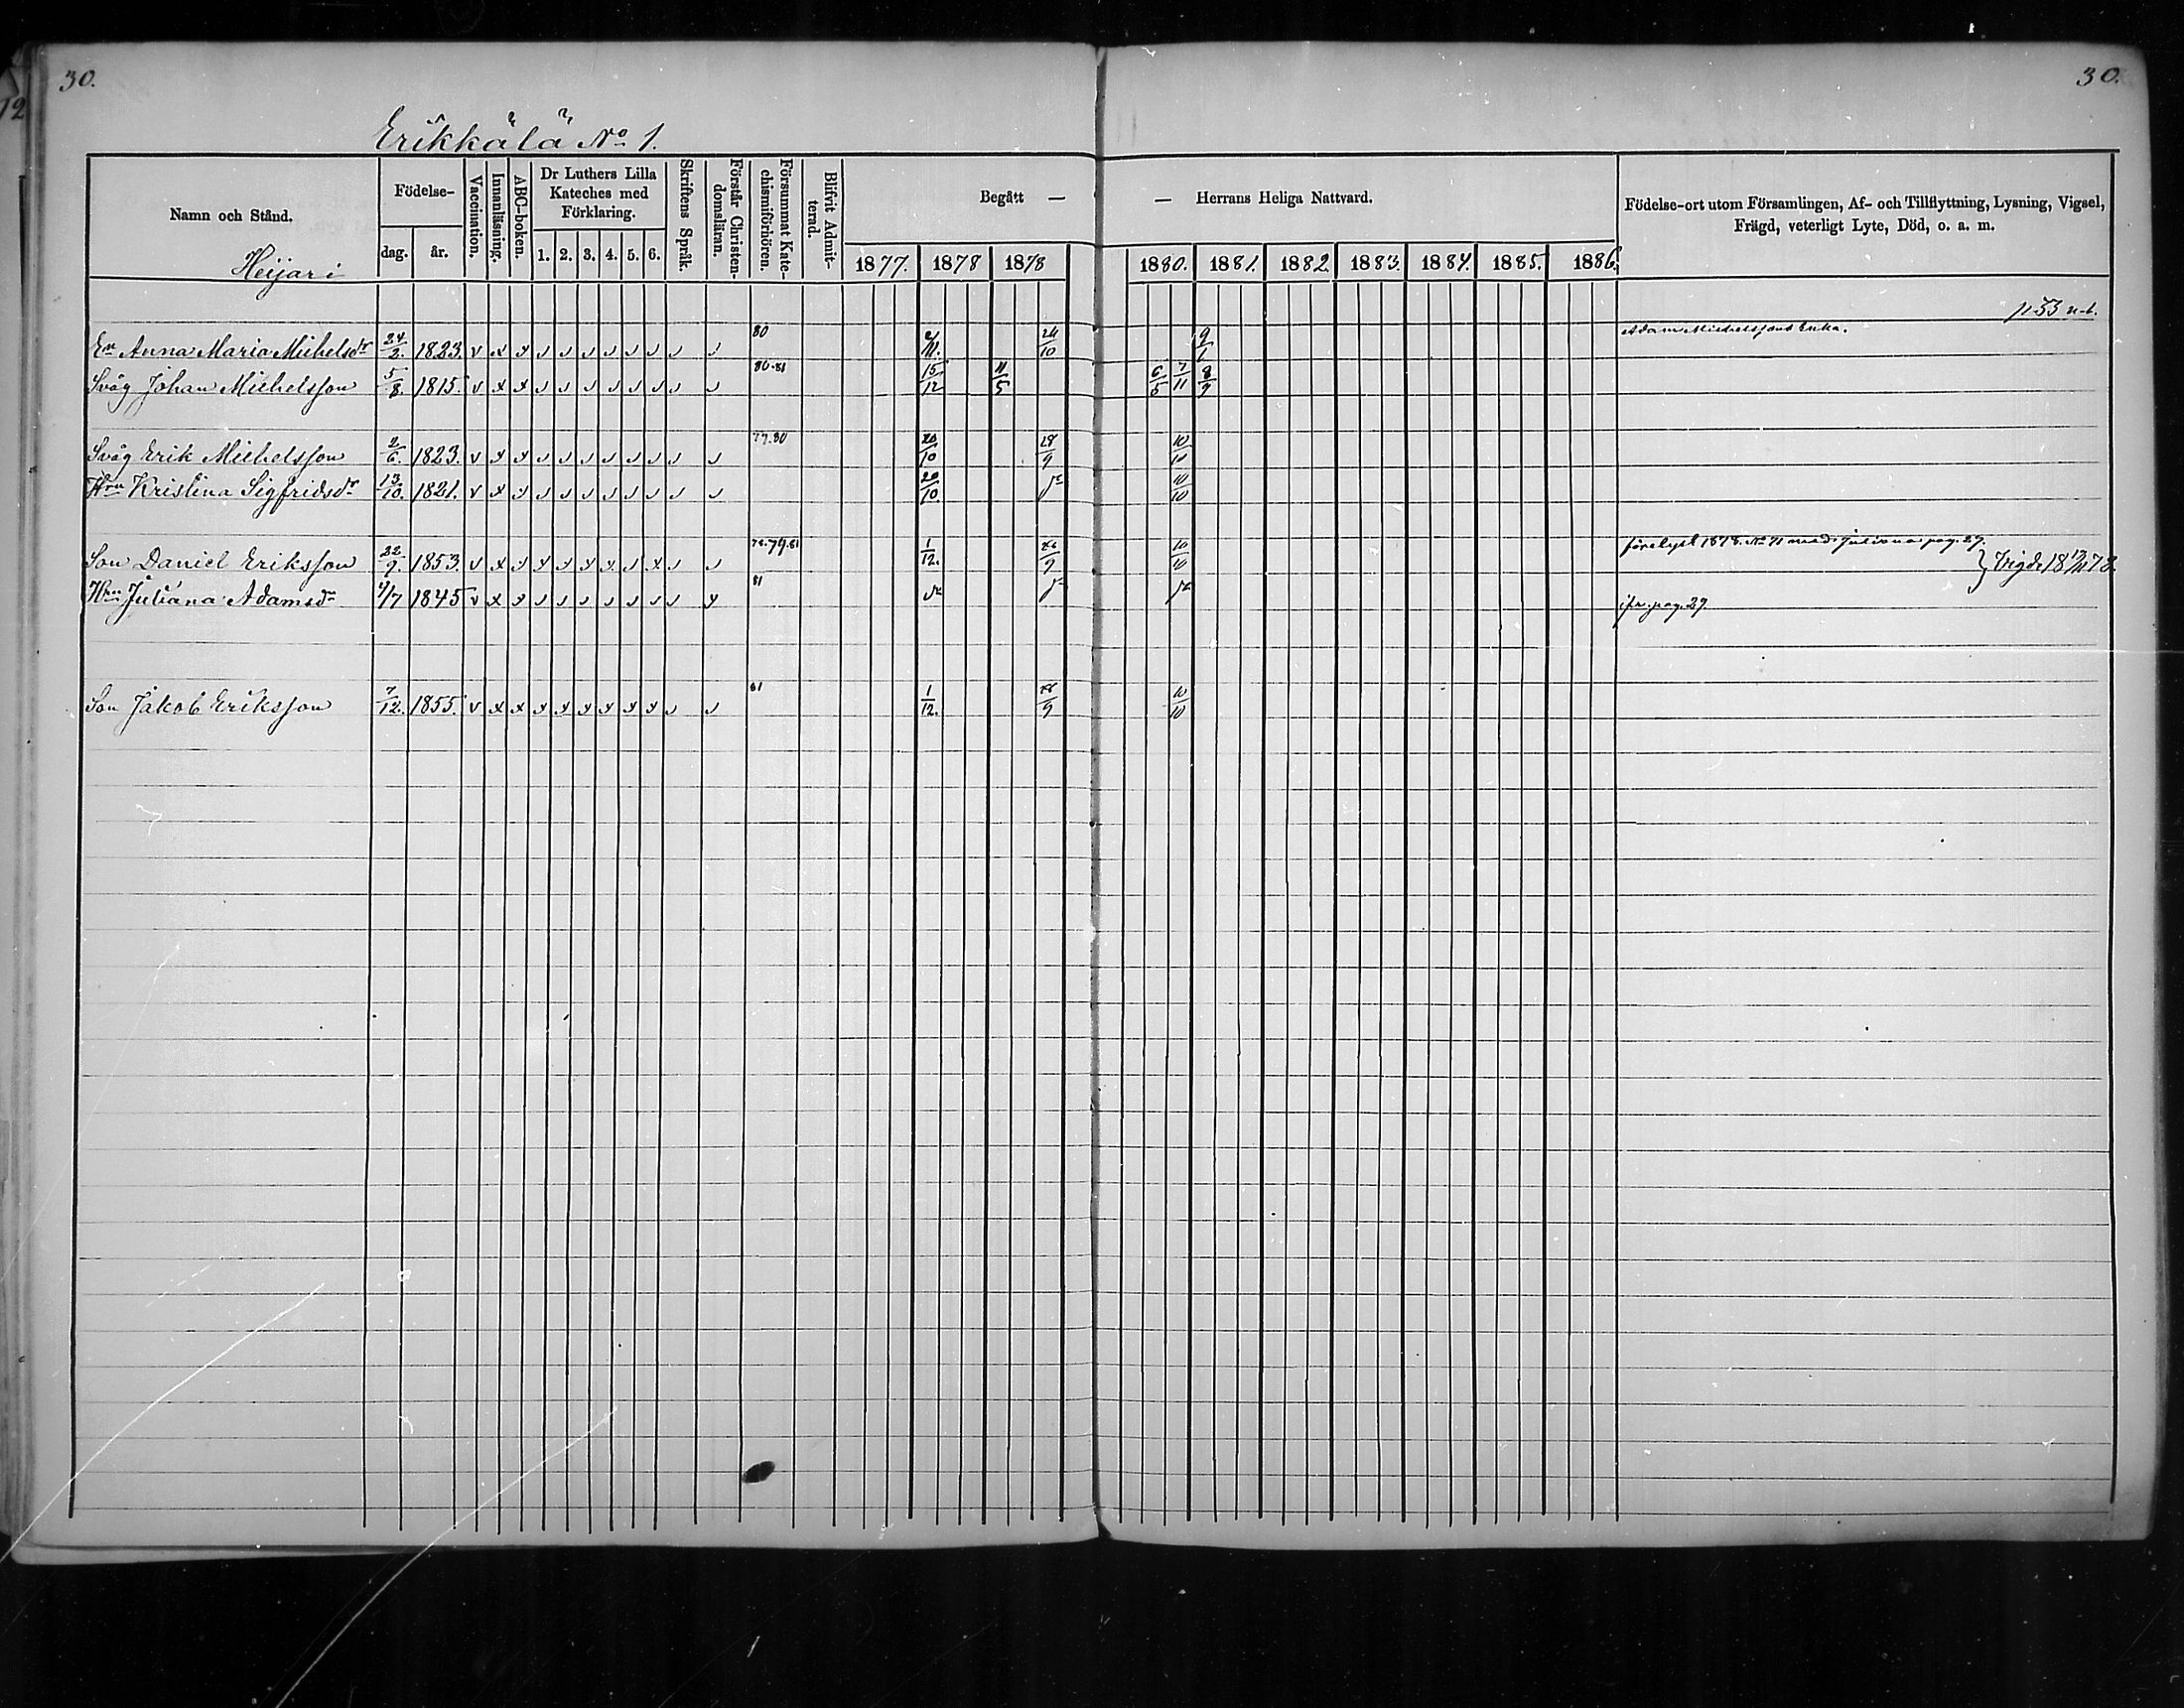 30.
30.
Erikkälä No 1.
Namn och Stånd.
Heijari
Födelse-
dag.
år.
Vaccination.
Innanläsning.
ABC-boken.
Dr Luthers Lilla
Kateches med
Förklaring.
1. 2. 3. 4. 5. 6.
Skriftens Språk.
Förstår Christen-
domsläran.
Försummat Kate-
chismiförhören.
Blifvit Admit-
terad.
Begått —
— Herrans Heliga Nattvard.
1877. 1878 1878 1880. 1881. 1882. 1883. 1884. 1885. 1886.
Födelse-ort utom Församlingen, Af- och Tillflyttning, Lysning, Vigsel,
Frägd, veterligt Lyte, Död, o. a. m.
En Anna Maria Michelsdr 24/2. 1823. 80 24/10 9/1 Adam Michelssons Enka.
Svåg Johan Michelsson 5/8. 1815. 80.81 15/12 11/5 6/5 7/11 8/9
Svåg Erik Michelsson 2/6. 1823. 77.80 20/10 28/9 10/10
Hru Kristina Sigfridsdr 13/10. 1821. 20/10 10/10
Son Daniel Eriksson 22/9. 1853. 1/12. 10/10 förelyst 1878. No 71 med Juliana pag. 29.
Hru Juliana Adamsdr 4/7 1845 81 jfr. pag. 29
Son Jakob Eriksson 7/12. 1855. 81 1/12. 28/9 10/10